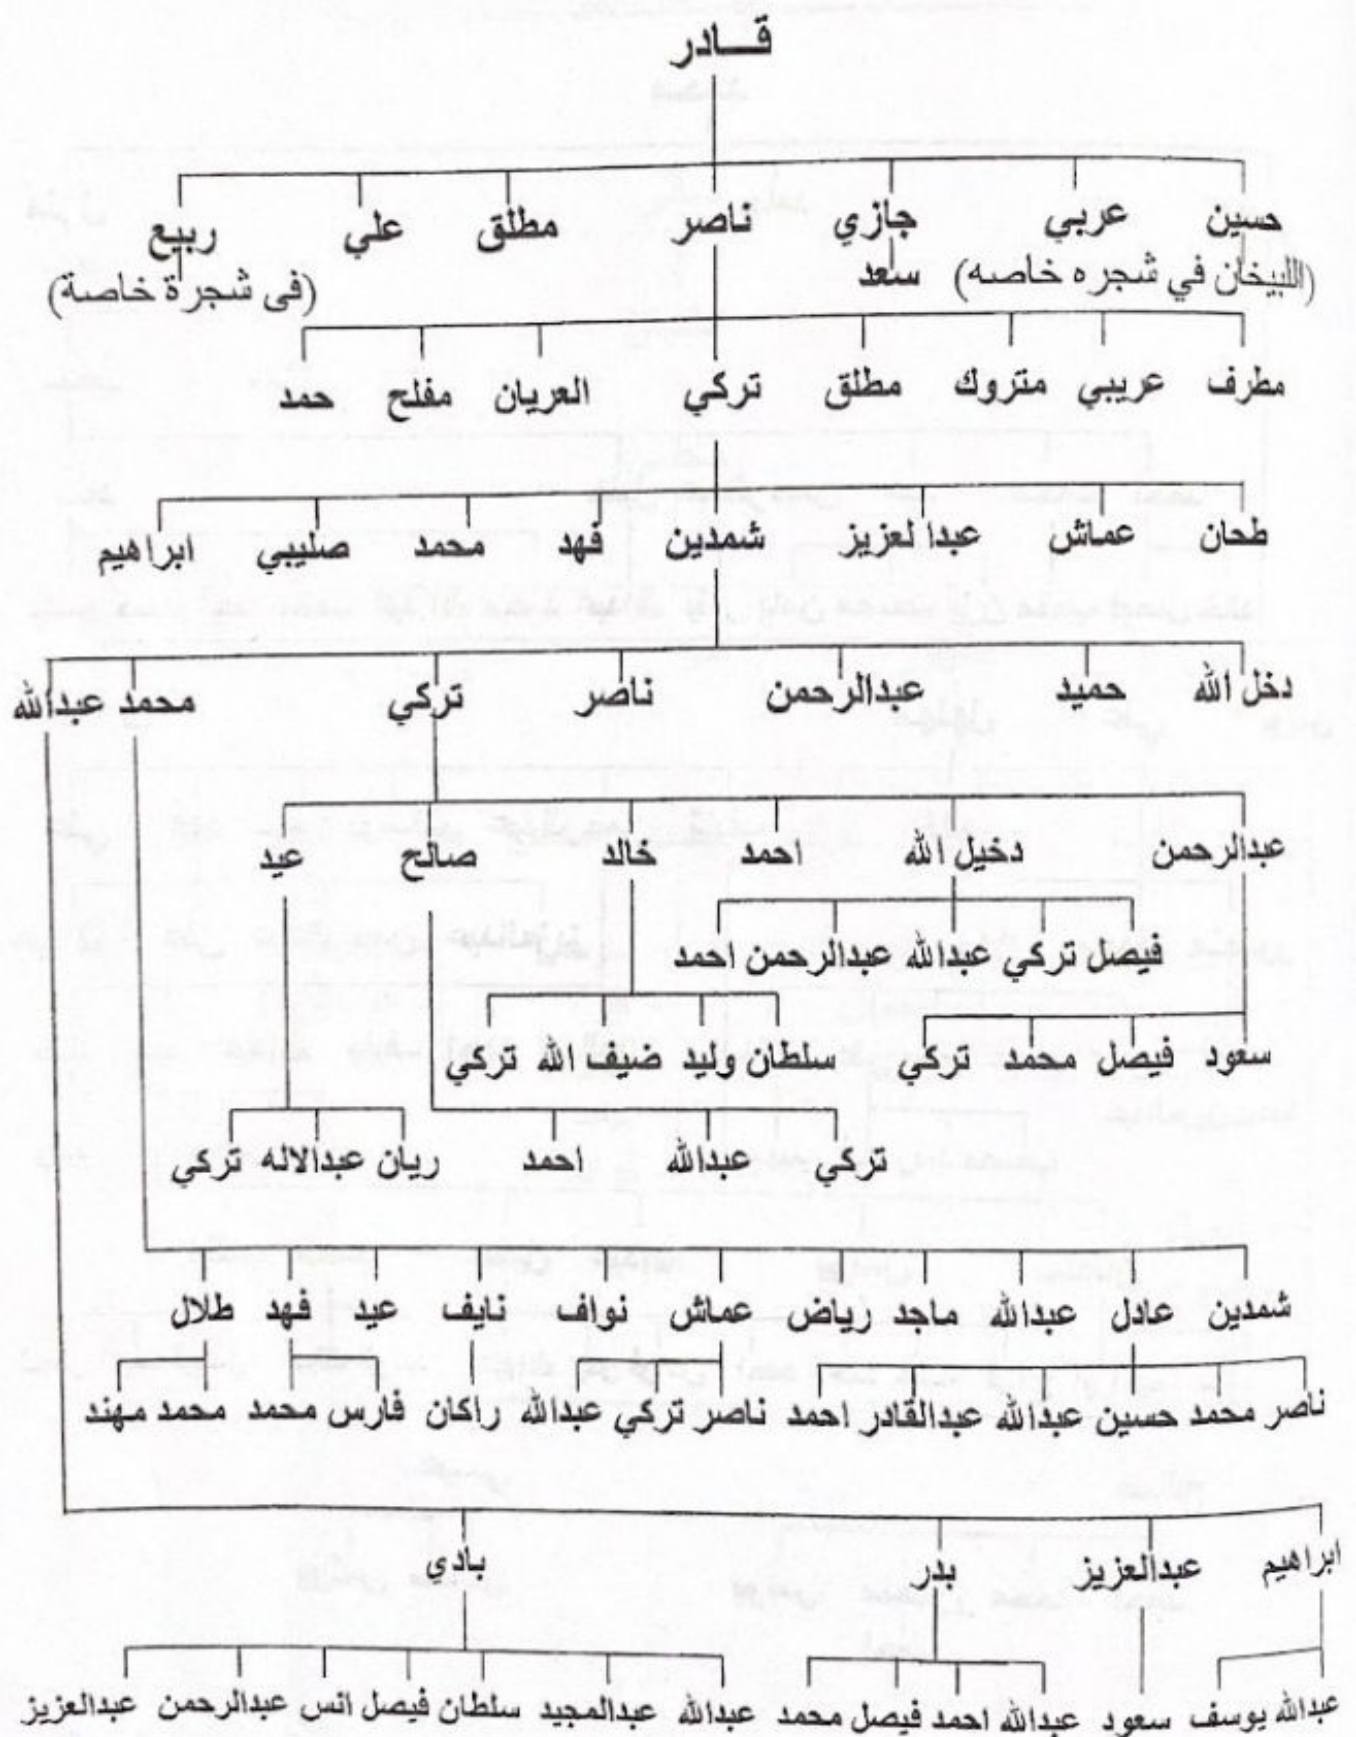 قادر
حسين عربي جازي ناصر مطلق علي ربيع
(اللبيخان في شجره خاصه) سعد (فى شجرة خاصة)
مطرف عريبي متروك مطلق تركي العريان مفلح حمد
طحان عماش عبدالعزيز شمدين فهد محمد صليبي ابراهيم
دخل الله حميد عبدالرحمن ناصر تركي محمد عبدالله
عبدالرحمن دخيل الله احمد خالد صالح عيد
فيصل تركي عبدالله عبدالرحمن احمد
سعود فيصل محمد تركي سلطان وليد ضيف الله تركي
تركي عبدالله احمد ريان عبدالاله تركي
شمدين عادل عبدالله ماجد رياض عماش نواف نايف عيد فهد طلال
ناصر محمد حسين عبدالله عبدالقادر احمد ناصر تركي عبدالله راكان فارس محمد محمد مهند
ابراهيم عبدالعزيز بدر بادي
عبدالله يوسف سعود عبدالله احمد فيصل محمد عبدالله عبدالمجيد سلطان فيصل انس عبدالرحمن عبدالعزيز